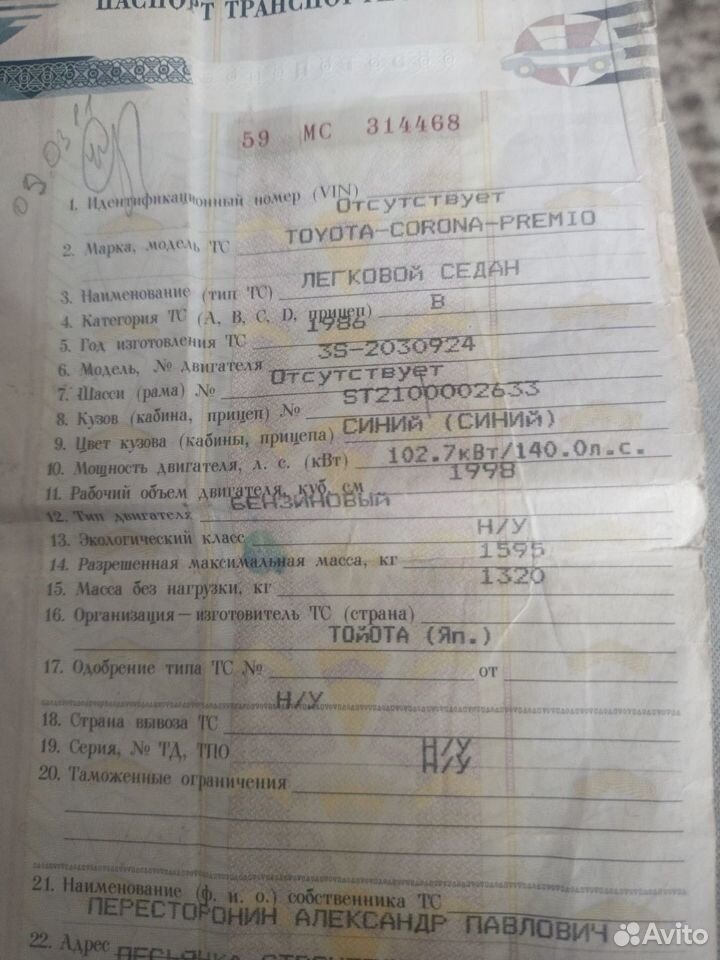 ПАСПОРТ
59 МС 314468
09.03.11
1. Идентификационный номер (VIN) Отсутствует
2. Марка, модель ТС TOYOTA-CORONA-PREMIO
3. Наименование (тип ТС) ЛЕГКОВОЙ СЕДАН
4. Категория ТС (A, B, C, D, прицеп) B
5. Год изготовления ТС 1986
6. Модель, № двигателя 3S-2030924
7. Шасси (рама) № Отсутствует
8. Кузов (кабина, прицеп) № ST2100002633
9. Цвет кузова (кабины, прицепа) СИНИЙ (СИНИЙ)
10. Мощность двигателя, л. с. (кВт) 102.7кВт/140.0л.с.
11. Рабочий объем двигателя, куб. см 1998
12. Тип двигателя БЕНЗИНОВЫЙ
13. Экологический класс Н/У
14. Разрешенная максимальная масса, кг 1595
15. Масса без нагрузки, кг 1320
16. Организация—изготовитель ТС (страна)
ТОЙОТА (Яп.)
17. Одобрение типа ТС № от
Н/У
18. Страна вывоза ТС
19. Серия, № ТД, ТПО Н/У
Н/У
20. Таможенные ограничения
21. Наименование (ф. и. о.) собственника ТС
ПЕРЕСТОРОНИН АЛЕКСАНДР ПАВЛОВИЧ
22. Адрес
Avito